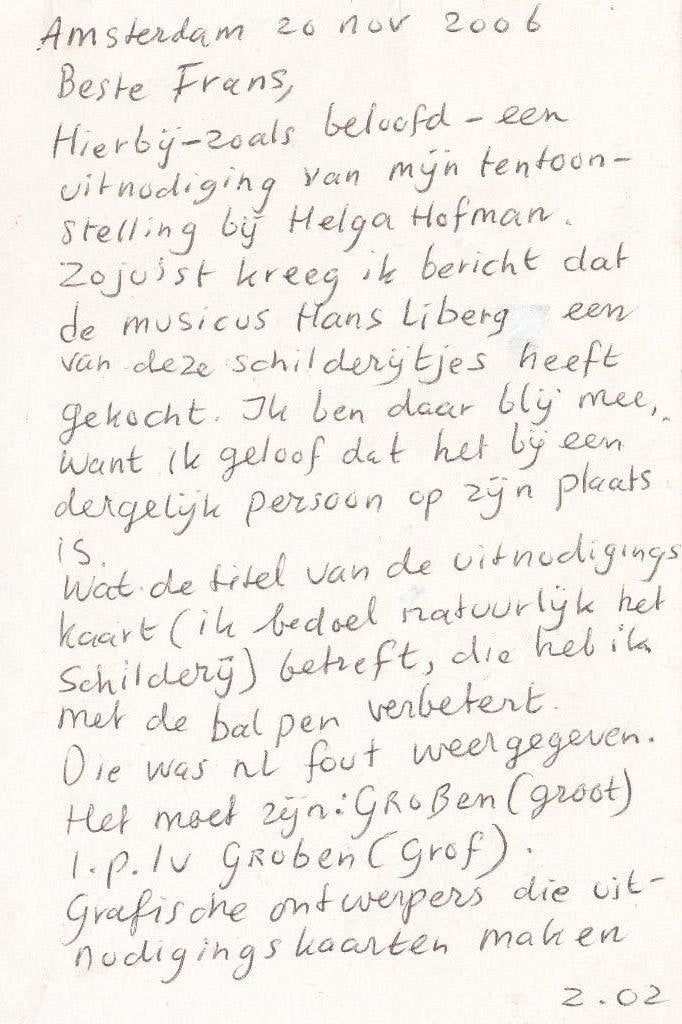 Amsterdam 20 nov 2006
Beste Frans,
Hierbij-zoals beloofd - een
uitnodiging van mijn tentoon-
stelling bij Helga Hofman.
Zojuist kreeg ik bericht dat
de musicus Hans Liberg een
van deze schilderijtjes heeft
gekocht. Ik ben daar blij mee,
want ik geloof dat het bij een
dergelijk persoon op zijn plaats
is.
Wat de titel van de uitnodigings
kaart (ik bedoel natuurlijk het
Schilderij) betreft, die heb ik
met de balpen verbetert.
Die was nl fout weergegeven.
Het moet zijn: GROßen (groot)
I.p.lv GROben (Grof).
Grafische ontwerpers die uit-
nodigingskaarten maken
2.02